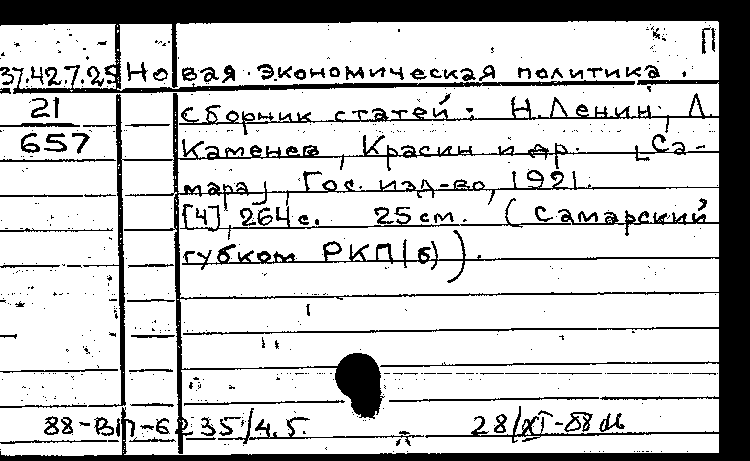 П
37.42.7.25 Новая экономическая политика.
21 Сборник статей: Н. Ленин, Л.
657 Каменев, Красин и др. [Са-
мара], Гос. изд-во, 1921.
[4], 264 с. 25 см. (Самарский
губком РКП(б)).
88-ВП-6235/4.5. 28/XI-88